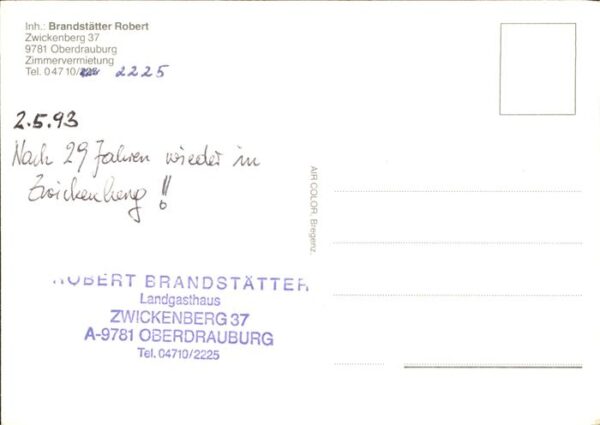 Inh.: Brandstätter Robert
Zwickenberg 37
9781 Oberdrauburg
Zimmervermietung
Tel. 04710/ 2225
2.5.93
Nach 29 Jahren wieder in
Zwickenberg !!
AIR COLOR, Bregenz.
ROBERT BRANDSTÄTTER
Landgasthaus
ZWICKENBERG 37
A-9781 OBERDRAUBURG
Tel. 04710/2225